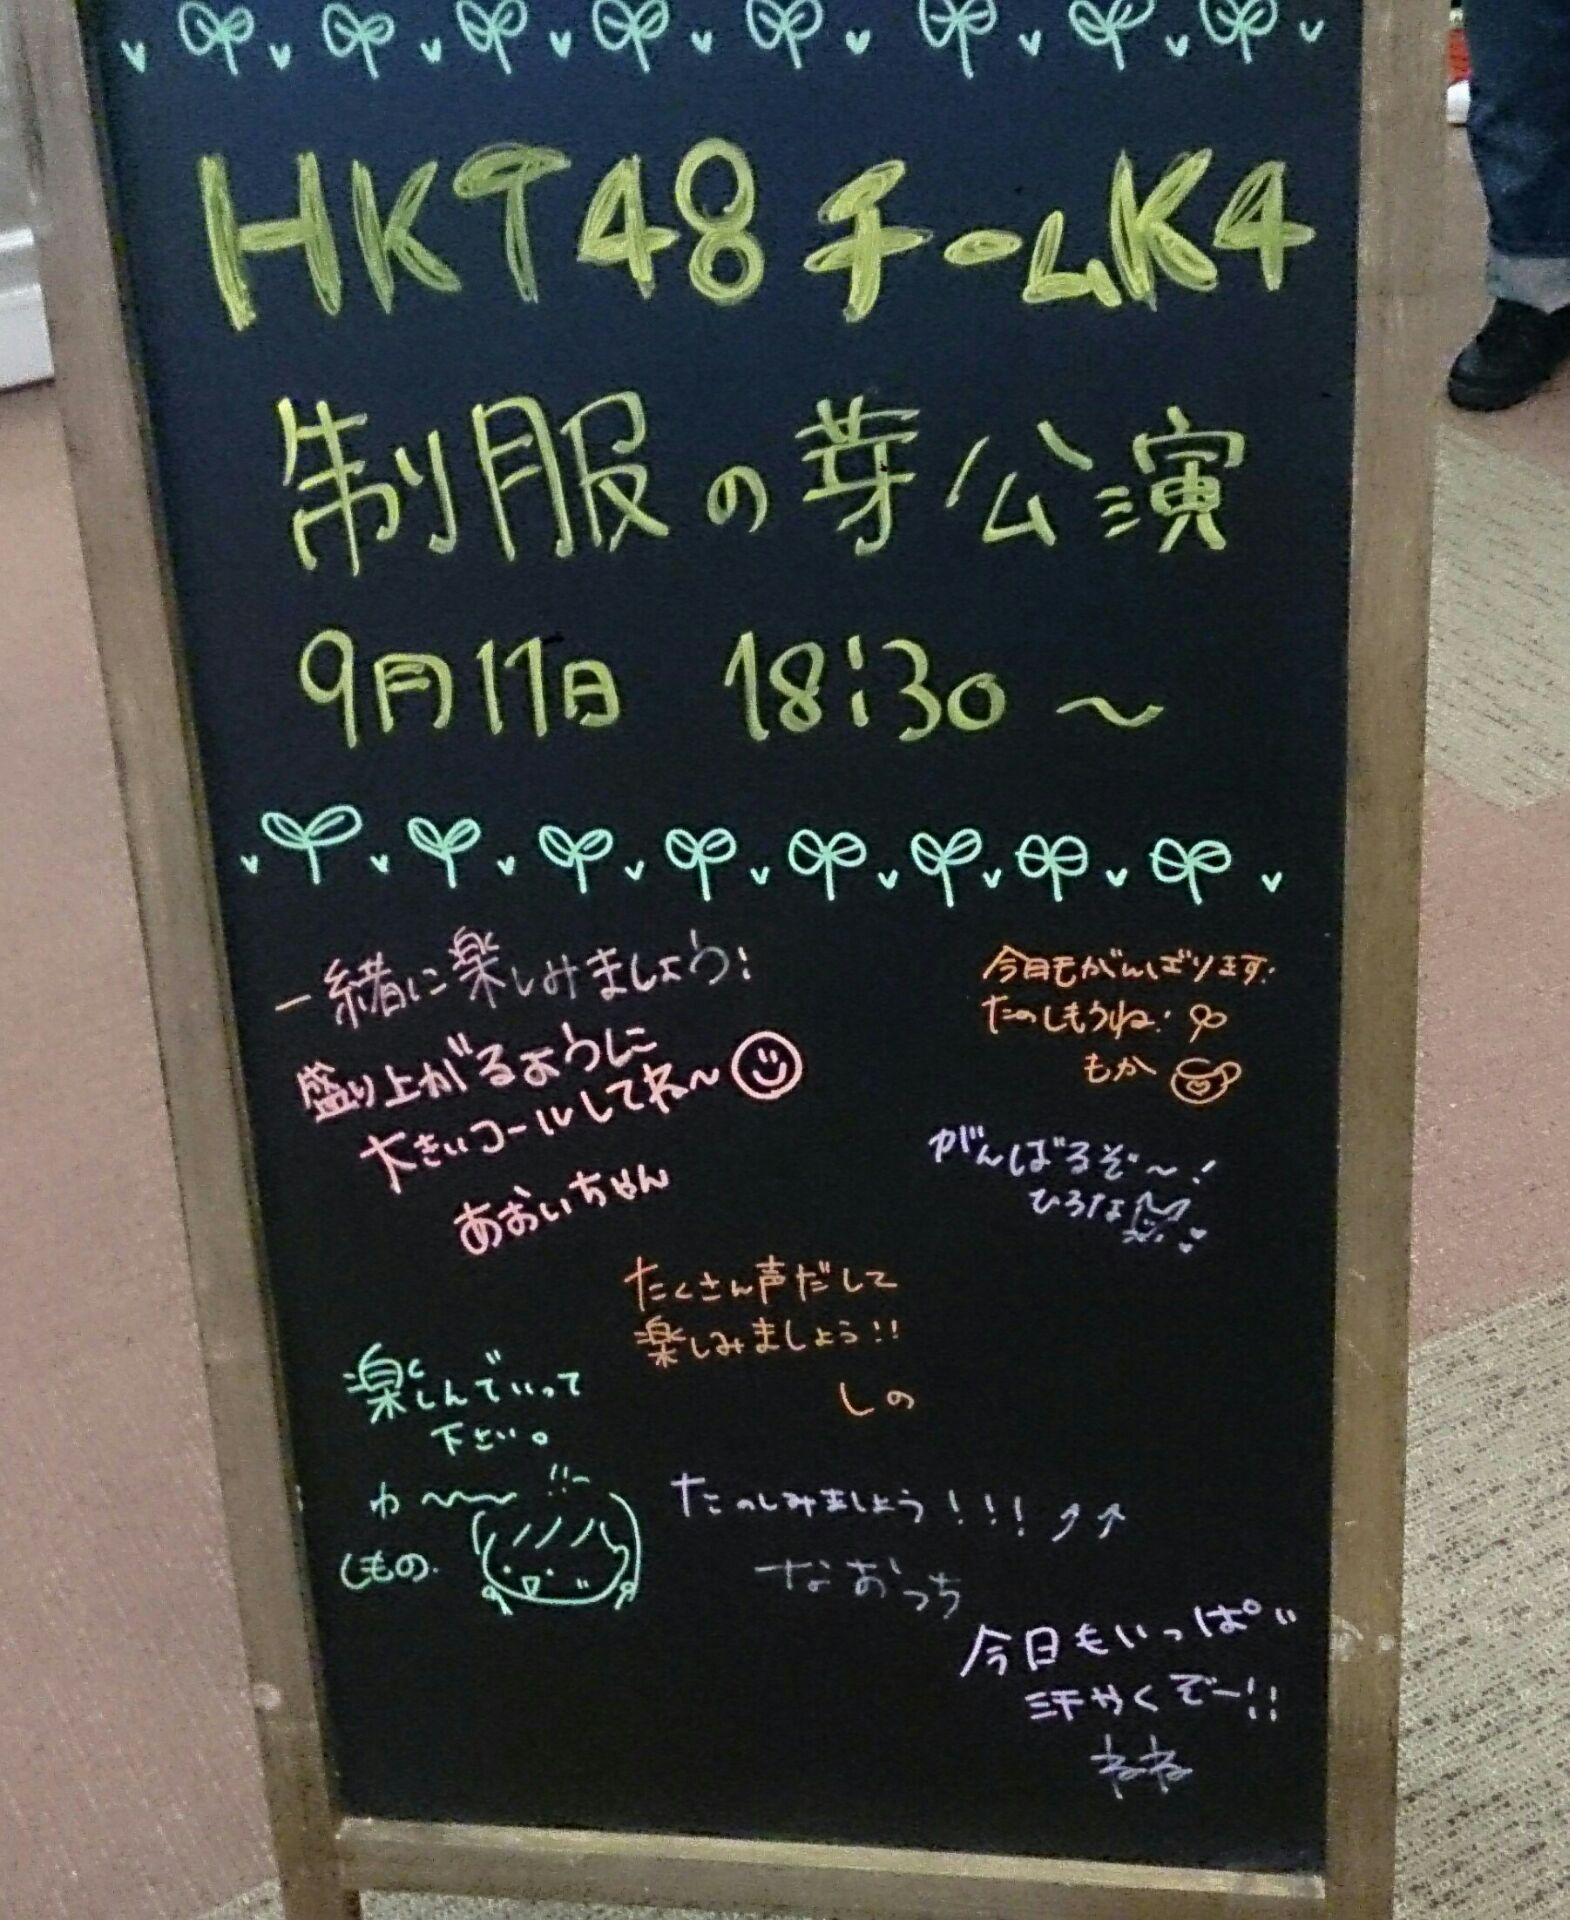 HKT48 チームK4
制服の芽公演
9月11日 18:30～
一緒に楽しみましょう!
盛り上がるように
大きいコールしてね～
あおいちゃん
今日もがんばります!
たのしもうね!
もか
がんばるぞ～!
ひろな
たくさん声だして
楽しみましょう!!
しの
楽しんでいって
下さい。
わ～～
しもの.
たのしみましょう!!!
なおっち
今日もいっぱい
汗かくぞー!!
ねね